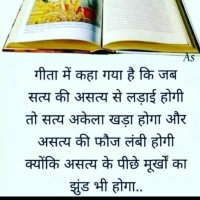 As
गीता में कहा गया है कि जब
सत्य की असत्य से लड़ाई होगी
तो सत्य अकेला खड़ा होगा और
असत्य की फौज लंबी होगी
क्योंकि असत्य के पीछे मूर्खों का
झुंड भी होगा..